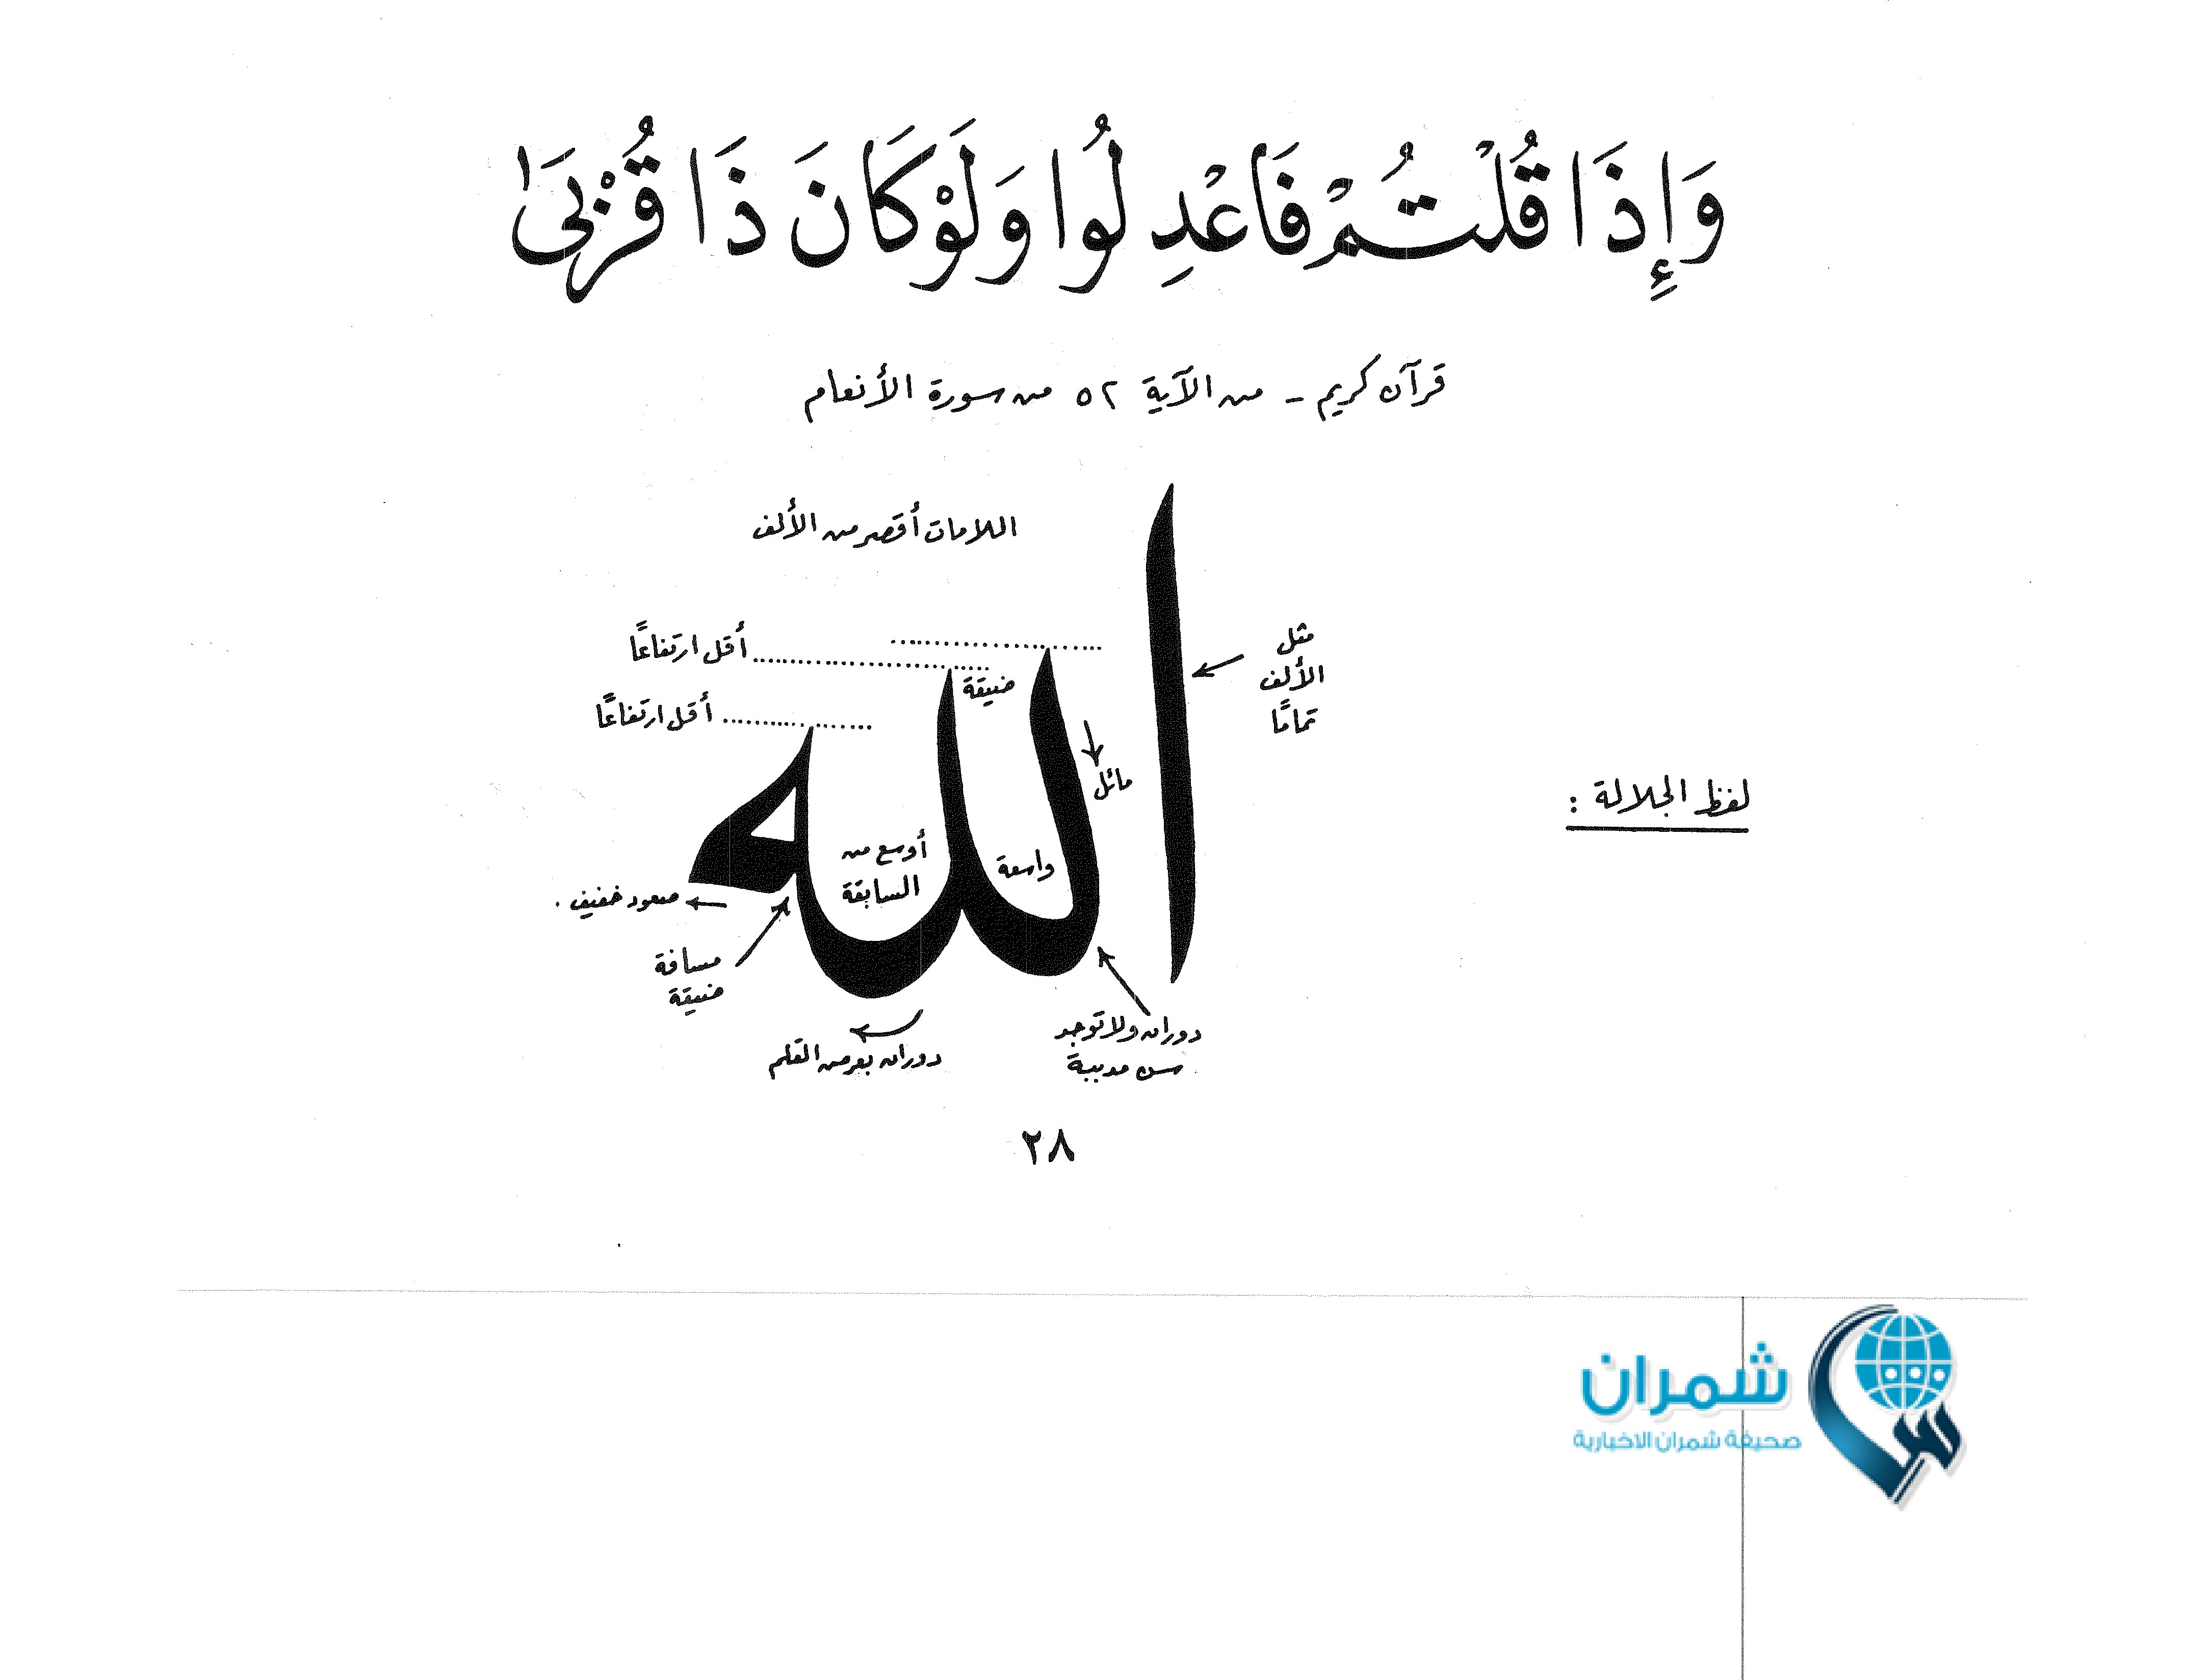 وَإِذَا قُلْتُمْ فَاعْدِلُوا وَلَوْ كَانَ ذَا قُرْبَىٰ
قرآن كريم - من الآية ٥٢ من سورة الأنعام
اللامات أقصر من الألف
مثل
الألف
تمامًا
أقل ارتفاعًا
ضيقة
أقل ارتفاعًا
مائل
لفظ الجلالة :
واسعة
أوسع من
السابقة
صعود خفيف .
مسافة
ضيقة
دوران ولا توجد
سن مدببة
دوران بعرض القلم
٢٨
شمران
صحيفة شمران الاخبارية